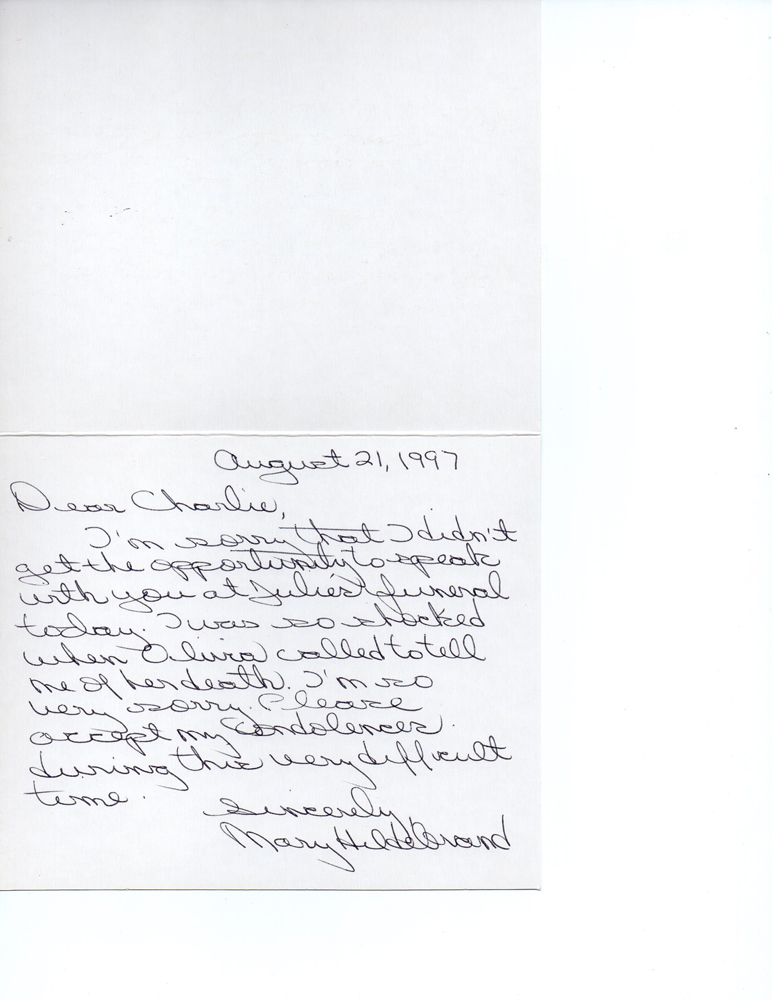 August 21, 1997
Dear Charlie,
I'm sorry that I didn't
get the opportunity to speak
with you at Julie's funeral
today. I was so shocked
when Olivia called to tell
me of her death. I'm so
very sorry. Please
accept my condolences
during this very difficult
time.
Sincerely,
Mary Hildebrand